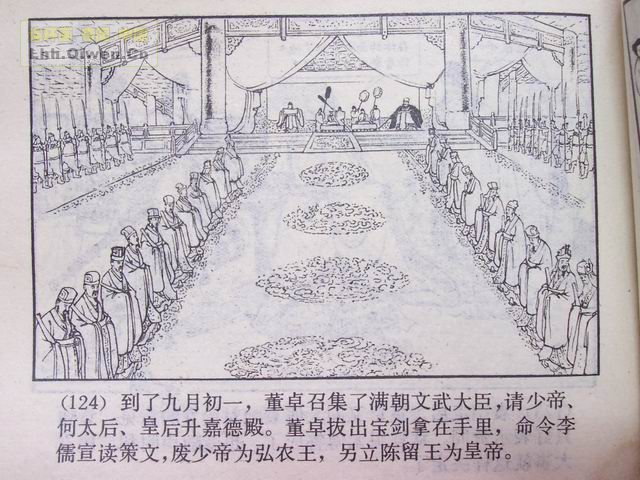 Lhh.Qiwen.Cn
(124) 到了九月初一，董卓召集了满朝文武大臣，请少帝、
何太后、皇后升嘉德殿。董卓拔出宝剑拿在手里，命令李
儒宣读策文，废少帝为弘农王，另立陈留王为皇帝。